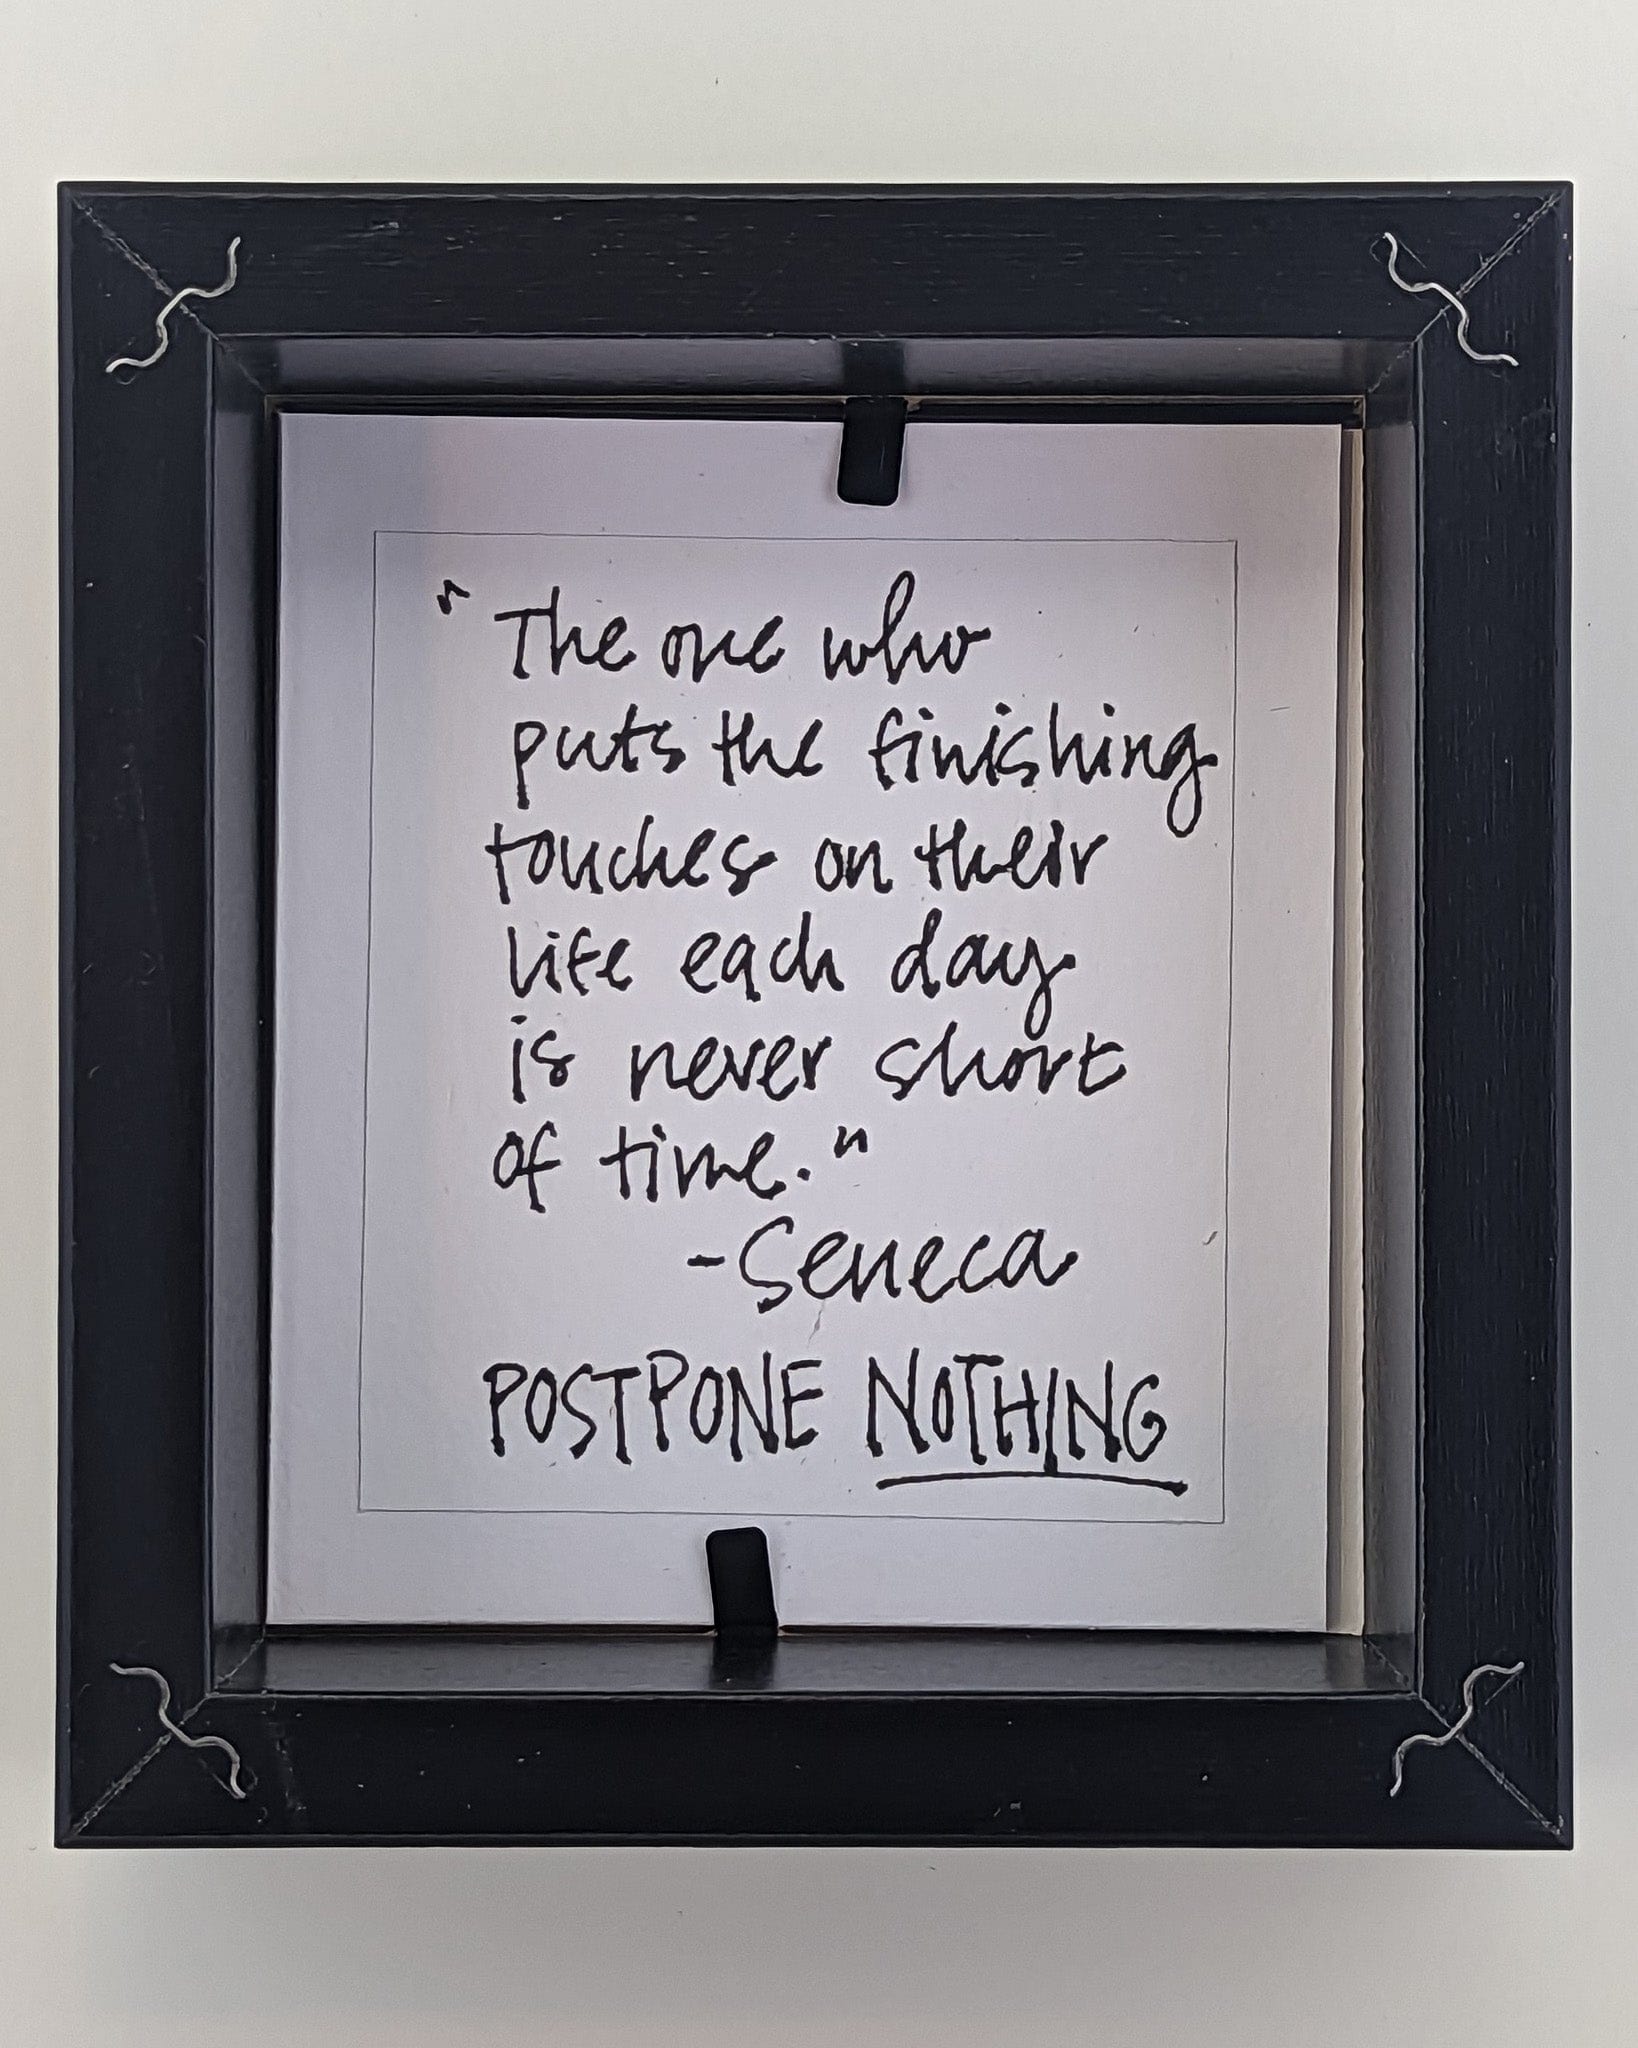 "The one who
puts the finishing
touches on their
life each day
is never short
of time."
-Seneca
POSTPONE NOTHING